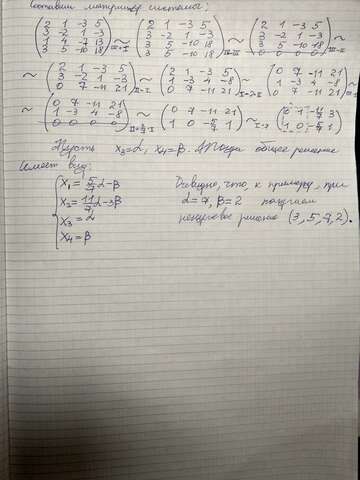 Составим матрицу системы:
(2 1 -3 5; 3 -2 1 -3; 1 4 -7 13; 3 5 -10 18) III-I ~ (2 1 -3 5; 3 -2 1 -3; 3 5 -10 18; 3 5 -10 18) IV-III ~ (2 1 -3 5; 3 -2 1 -3; 3 5 -10 18; 0 0 0 0) III-II ~
~ (2 1 -3 5; 3 -2 1 -3; 0 7 -11 21) II-I ~ (2 1 -3 5; 1 -3 4 -8; 0 7 -11 21) I-2II ~ (0 7 -11 21; 1 -3 4 -8; 0 7 -11 21)
~ (0 7 -11 21; 1 -3 4 -8; 0 0 0 0) ~ (0 7 -11 21; 1 0 -5/7 1) ~ (0 1 -11/7 3; 1 0 -5/7 1)
Пусть x3=α, x4=β. Тогда общее решение
имеет вид:
x1 = 5/7 α-β
x2 = 11/7 α-3β
x3 = α
x4 = β
Очевидно, что, к примеру, при
α=7, β=2 получаем
решение (3,5,7,2).